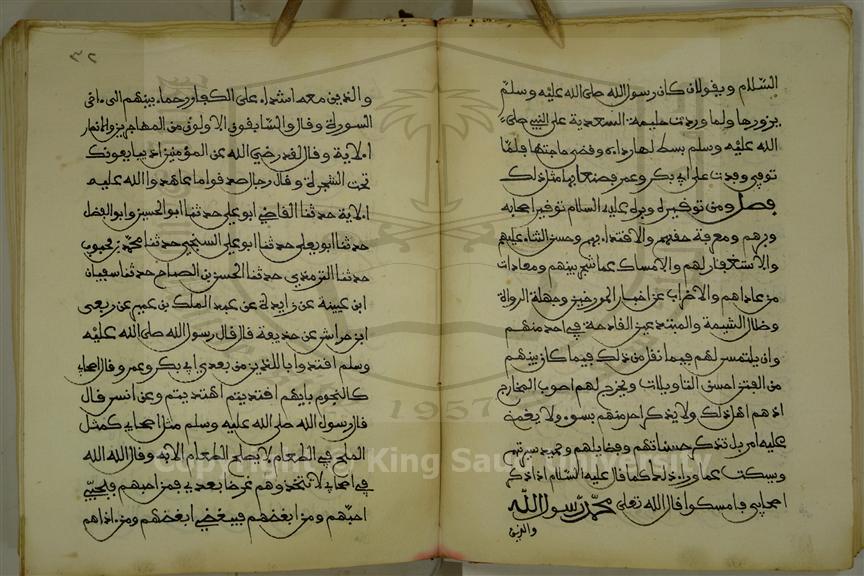 السّلام ويقولان كان رسول الله صلى الله عليه وسلم
يزورها ولما وردت حليمة السعدية على النبي صلى
الله عليه وسلم بسط لها رداءه وقضى حاجتها فلما
توفي وفدت على أبي بكر وعمر فصنعا بها مثل ذلك
فصل ومن توقيره وبره عليه السلام توقير اصحابه
وبرهم ومعرفة حقهم والاقتداء بهم وحسن الثناء عليهم
والاستغفار لهم والامساك عما شجر بينهم ومعادات
من عاداهم والاضراب عن اخبار المورخين وجهلة الرواة
وضلال الشيعة والمبتدعين القادحة في احد منهم
وان يلتمس لهم فيما نقل من ذلك فيما كان بينهم
من الفتن احسن التاويلات ويخرج لهم اصوب المخارج
اذ هم اهل ذلك ولا يذكر احد منهم بسوء ولا يغمص
عليه امر بل تذكر حسناتهم وفضايلهم وحميد سيرتهم
ويسكت عما وراء ذلك كما قال عليه السلام اذا ذكر
اصحابي فامسكوا قال الله تعلى محمد رسول الله
والذين
٣٢
والذين معه اشداء على الكفار رحماء بينهم الى ءاخر
السورة وقال والسابقون الاولون من المهاجرين والانصار
الاية وقال لقد رضي الله عن المؤمنين اذ يبايعونك
تحت الشجرة وقال رجال صدقوا ما عاهدوا الله عليه
الاية حدثنا القاضي ابو علي حدثنا ابو الحسين وابو الفضل
حدثنا ابو يعلى حدثنا ابو علي السنجي حدثنا محمد بن محبوب
حدثنا الترمذي حدثنا الحسن بن الصباح حدثنا سفيان
ابن عيينة عن زايدة عن عبد الملك بن عمير عن ربعي
ابن حراش عن حذيفة قال قال رسول الله صلى الله عليه
وسلم اقتدوا باللذين من بعدي ابي بكر وعمر وقال اصحابي
كالنجوم بايهم اقتديتم اهتديتم وعن انس قال
قال رسول الله صلى الله عليه وسلم مثل اصحابي كمثل
الملح في الطعام لا يصلح الطعام الا به وقال الله الله
في اصحابي لا تتخذوهم غرضا بعدي فمن احبهم فبحبي
احبهم ومن ابغضهم فببغضي ابغضهم ومن ءاذاهم
1957
Copyright © King Saud University